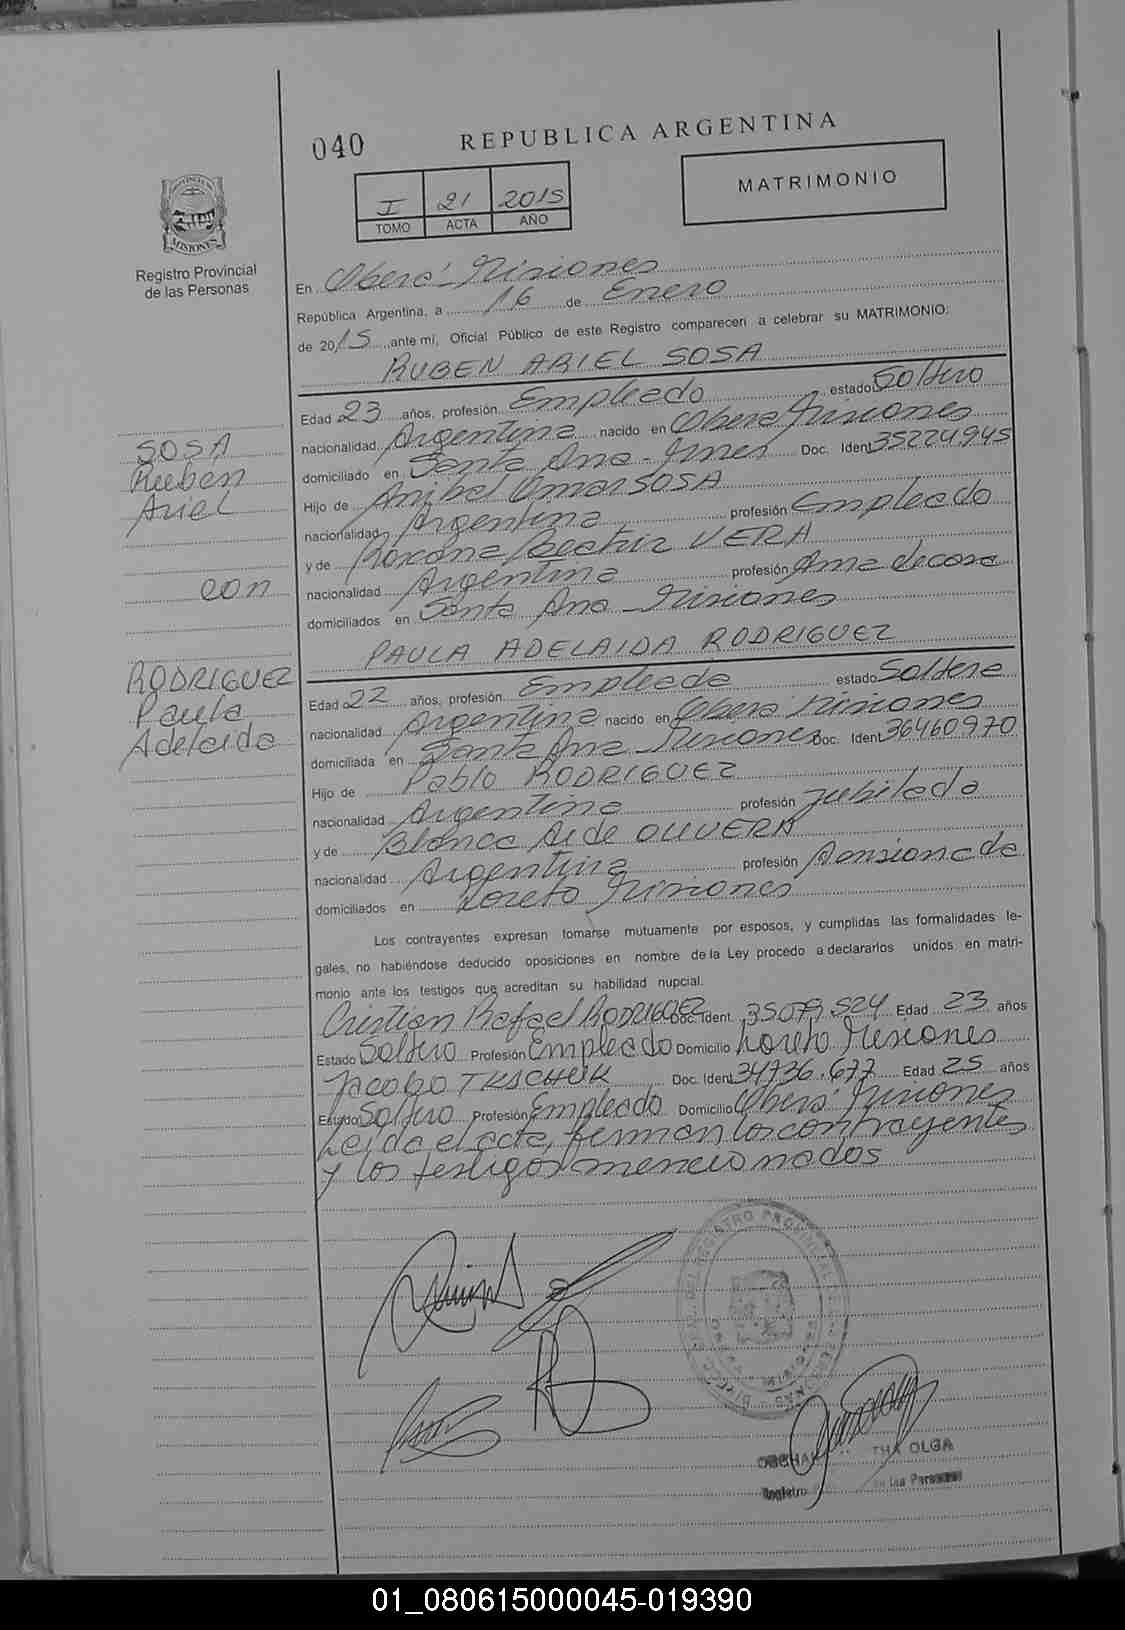 040 REPUBLICA ARGENTINA
I 21 2015
TOMO ACTA AÑO
MATRIMONIO
PROVINCIA DE
MISIONES
Registro Provincial
de las Personas
En Oberá - Misiones
República Argentina, a 16 de Enero
de 2015 ante mí, Oficial Público de este Registro comparecen a celebrar su MATRIMONIO:
RUBEN ARIEL SOSA
Edad 23 años, profesión Empleado estado Soltero
nacionalidad Argentina nacido en Oberá Misiones
domiciliado en Santa Ana - Mnes Doc. Ident 35224945
Hijo de Anibal Omar SOSA
nacionalidad Argentina profesión Empleado
y de Roxana Beatriz VERA
nacionalidad Argentina profesión Ama de casa
domiciliados en Santa Ana - Misiones
PAULA ADELAIDA RODRIGUEZ
Edad 22 años, profesión Empleada estado Soltera
nacionalidad Argentina nacido en Oberá Misiones
domiciliada en Santa Ana - Misiones Doc. Ident 36460970
Hijo de Pablo RODRIGUEZ
nacionalidad Argentina profesión Jubilado
y de Blanca OLIVERA
nacionalidad Argentina profesión Pensionada
domiciliados en Loreto Misiones
SOSA
Ruben
Ariel
con
RODRIGUEZ
Paula
Adelaida
Los contrayentes expresan tomarse mutuamente por esposos, y cumplidas las formalidades le-
gales, no habiéndose deducido oposiciones en nombre de la Ley procedo a declararlos unidos en matri-
monio ante los testigos que acreditan su habilidad nupcial.
Cristian Rafael RODRIGUEZ Doc. Ident. 35079.524 Edad 23 años
Estado Soltero Profesión Empleado Domicilio Loreto Misiones
Jacobo TKACHUK Doc. Ident 34736.677 Edad 25 años
Estado Soltero Profesión Empleado Domicilio Oberá Misiones
Leida el acta, firman los contrayentes
y los testigos mencionados
REGISTRO PROVINCIAL
OLGA
Registro
las Personas
01_080615000045-019390